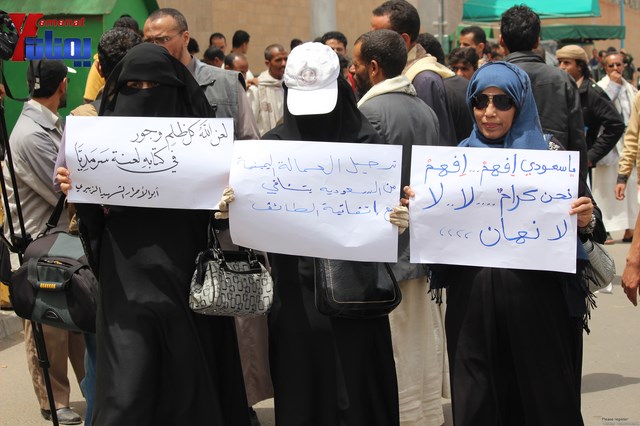 ياسعودي إفهمْ...إفهمْ
نحن كرامٌ....لا..لا
لا نهان ،،،،
ترحيل العمالة اليمنية
من السعودية يتنافى
مع اتفاقية الطائف
لعن الله كل ظلم وجور
في كتابه لعنة سرمديا
أبو الأحرار الشهيد الزبيري